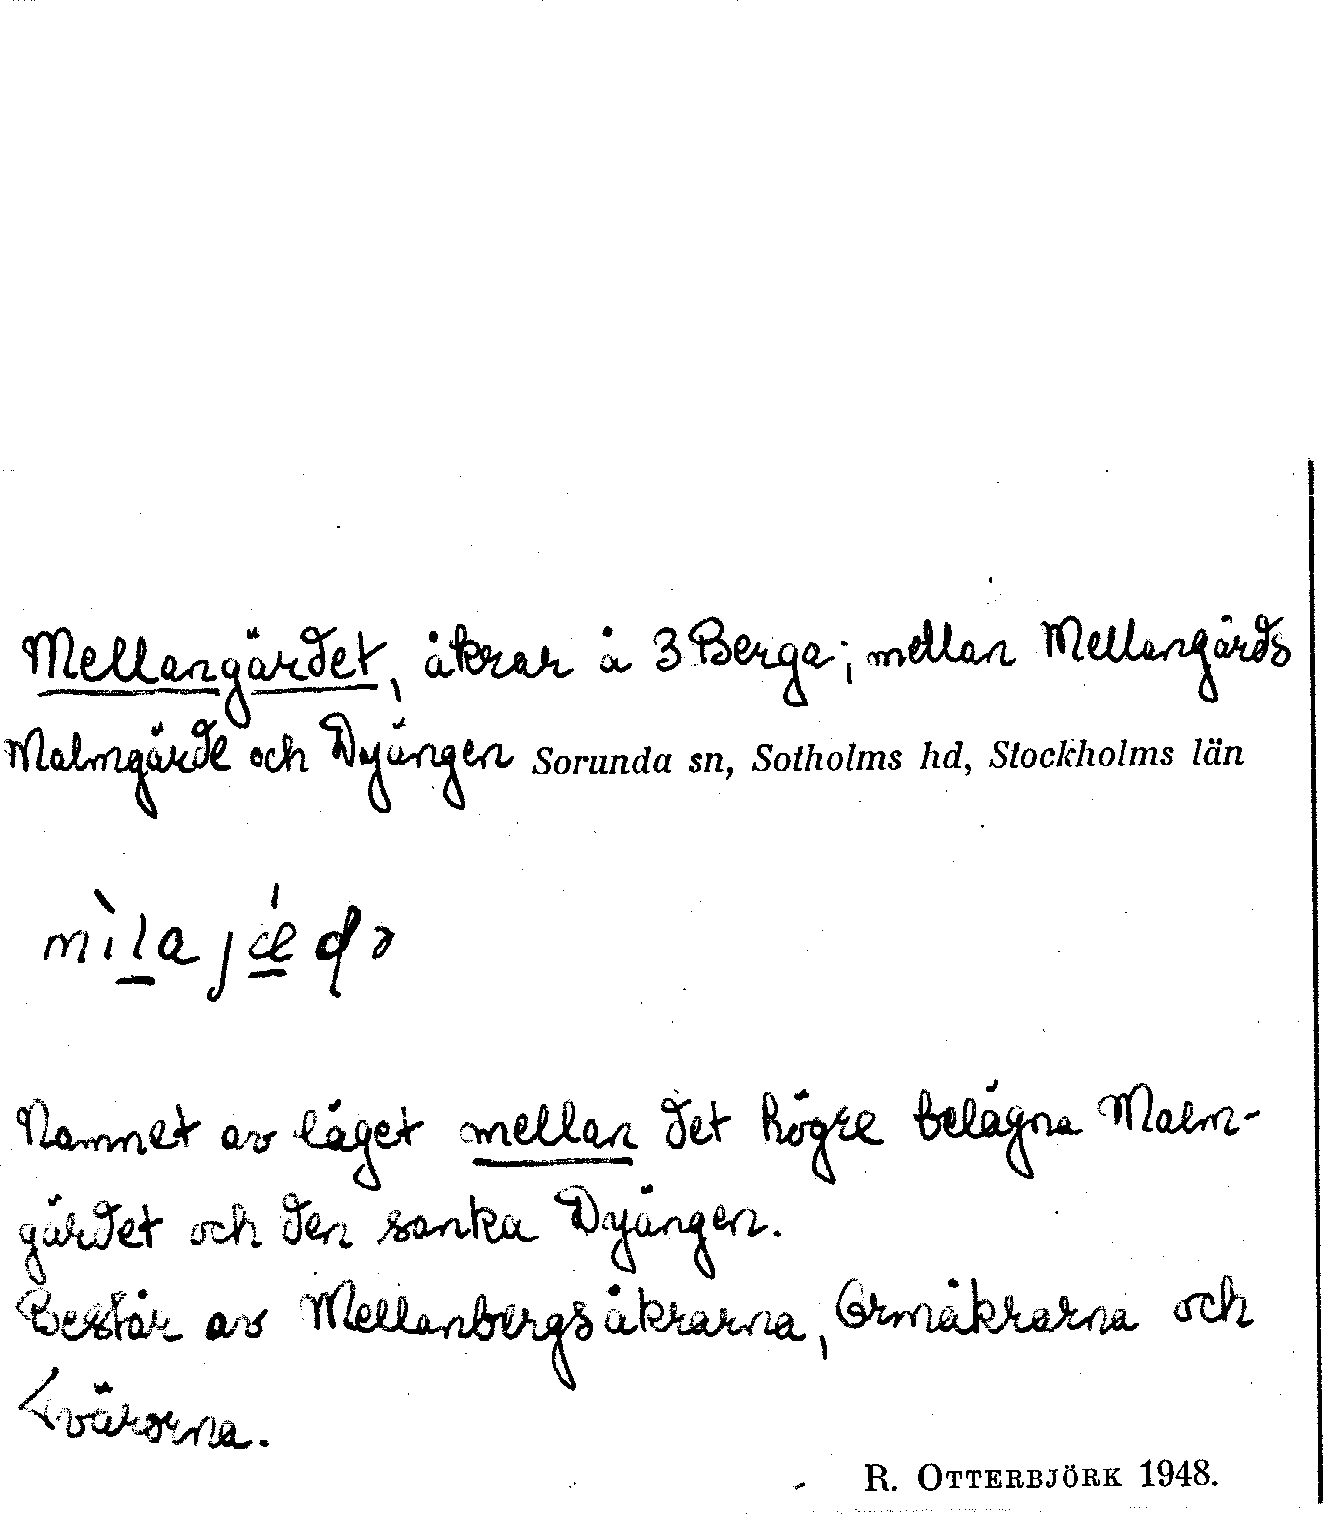 Mellangärdet, åkrar å 3 Berga; mellan Mellangärds
Malmgärde och Dyängen Sorunda sn, Sotholms hd, Stockholms län
mìlajǽɖə
Namnet av läget mellan det högre belägna Malm-
gärdet och den sanka Dyängen.
Består av Mellanbergsåkrarna, Ormåkrarna och
R. OTTERBJÖRK 1948.